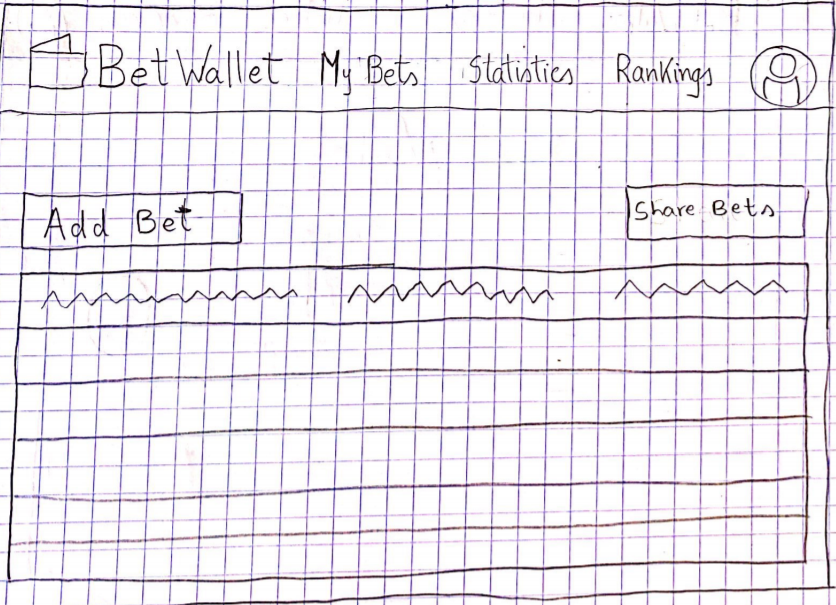 BetWallet My Bets Statistics Rankings
Add Bet Share Bets